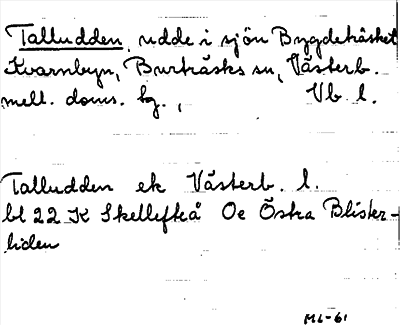 Talludden, udde i sjön Bygdeträsket
Kvarnbyn, Burträsks sn, Västerb.
mell. doms. hg., Vb l.
Talludden ek Västerb. l.
bl 22 K Skellefteå Oe Östra Blister-
liden
ML-61